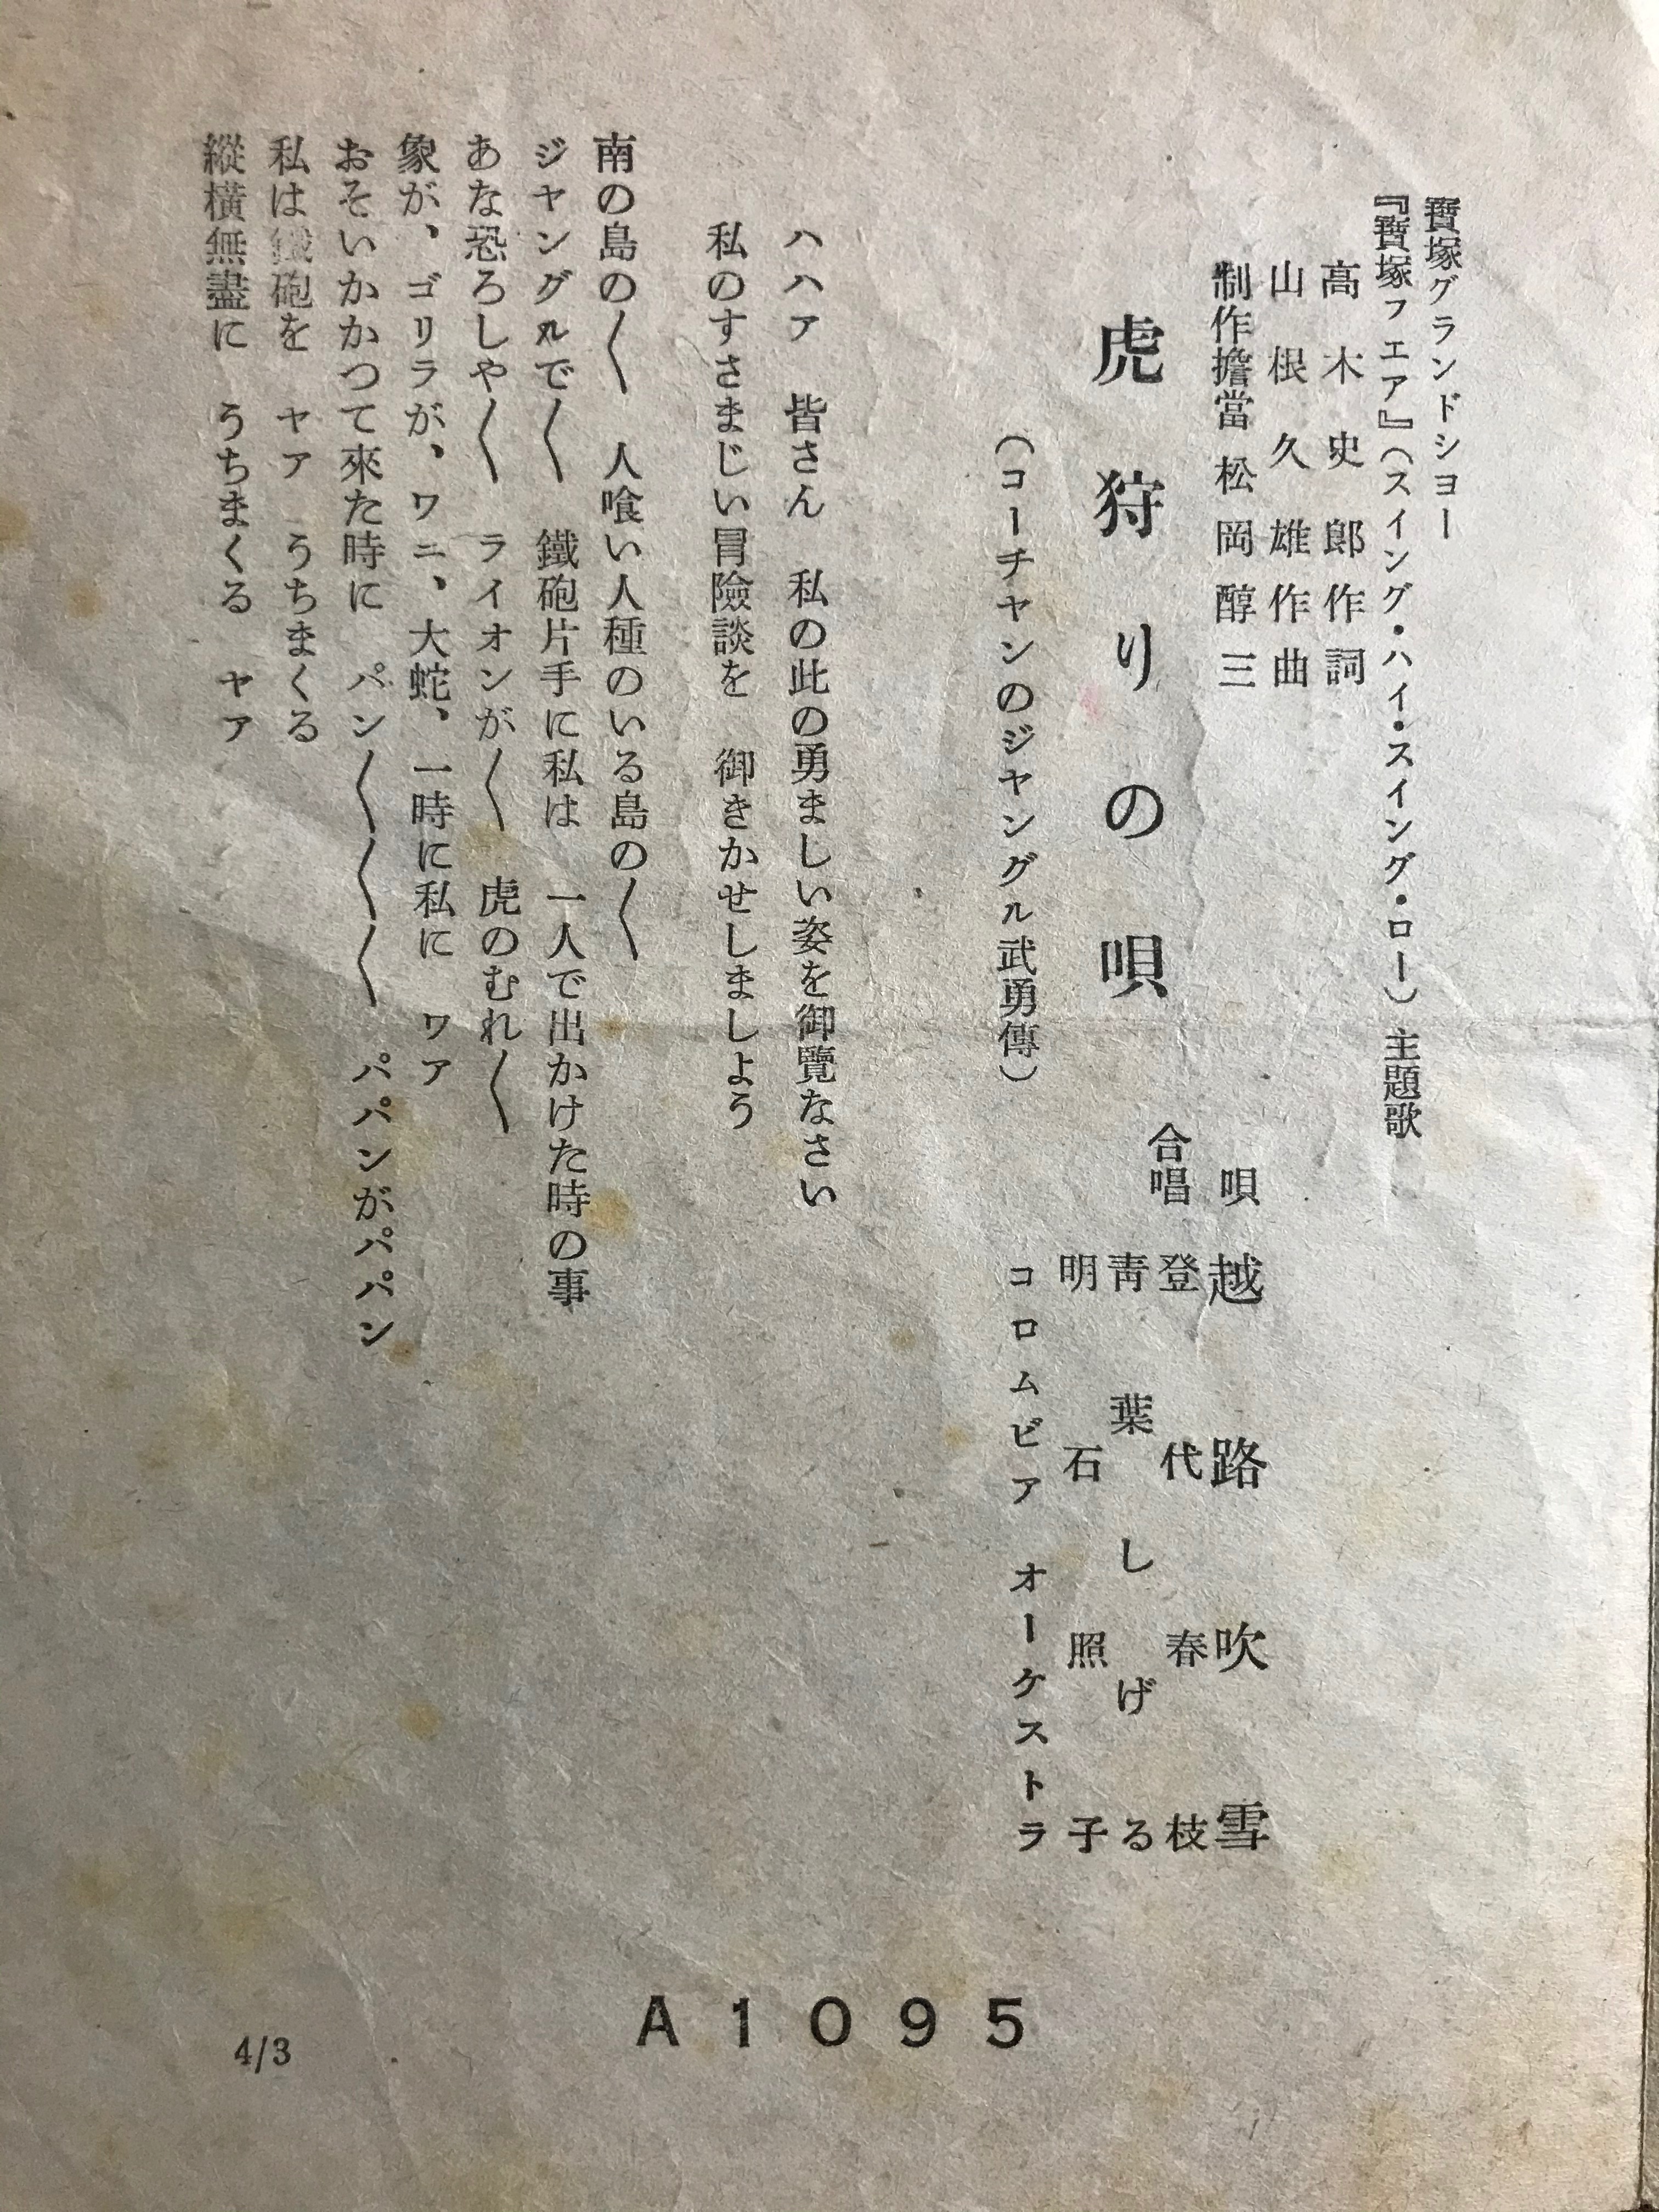 寶塚グランドシヨー
『寶塚フエア』(スイング・ハイ・スイング・ロー) 主題歌
高木史郎作詞
山根久雄作曲
制作擔當 松岡醇三
虎狩りの唄
(コーチヤンのジヤングル武勇傳)
唄 越路吹雪
合唱 登代春枝
靑葉しげる
明石照子
コロムビア オーケストラ
ハハア 皆さん 私の此の勇ましい姿を御覽なさい
私のすさまじい冒險談を 御きかせしましよう
南の島の〱 人喰い人種のいる島の〱
ジヤングルで〱 鐵砲片手に私は 一人で出かけた時の事
あな恐ろしや〱 ライオンが〱 虎のむれ〱
象が、ゴリラが、ワニ、大蛇、一時に私に ワア
おそいかかつて來た時に パン〱〱〱 パパンがパパン
私は鐵砲を ヤア うちまくる
縱橫無盡に うちまくる ヤア
A1095
4/3